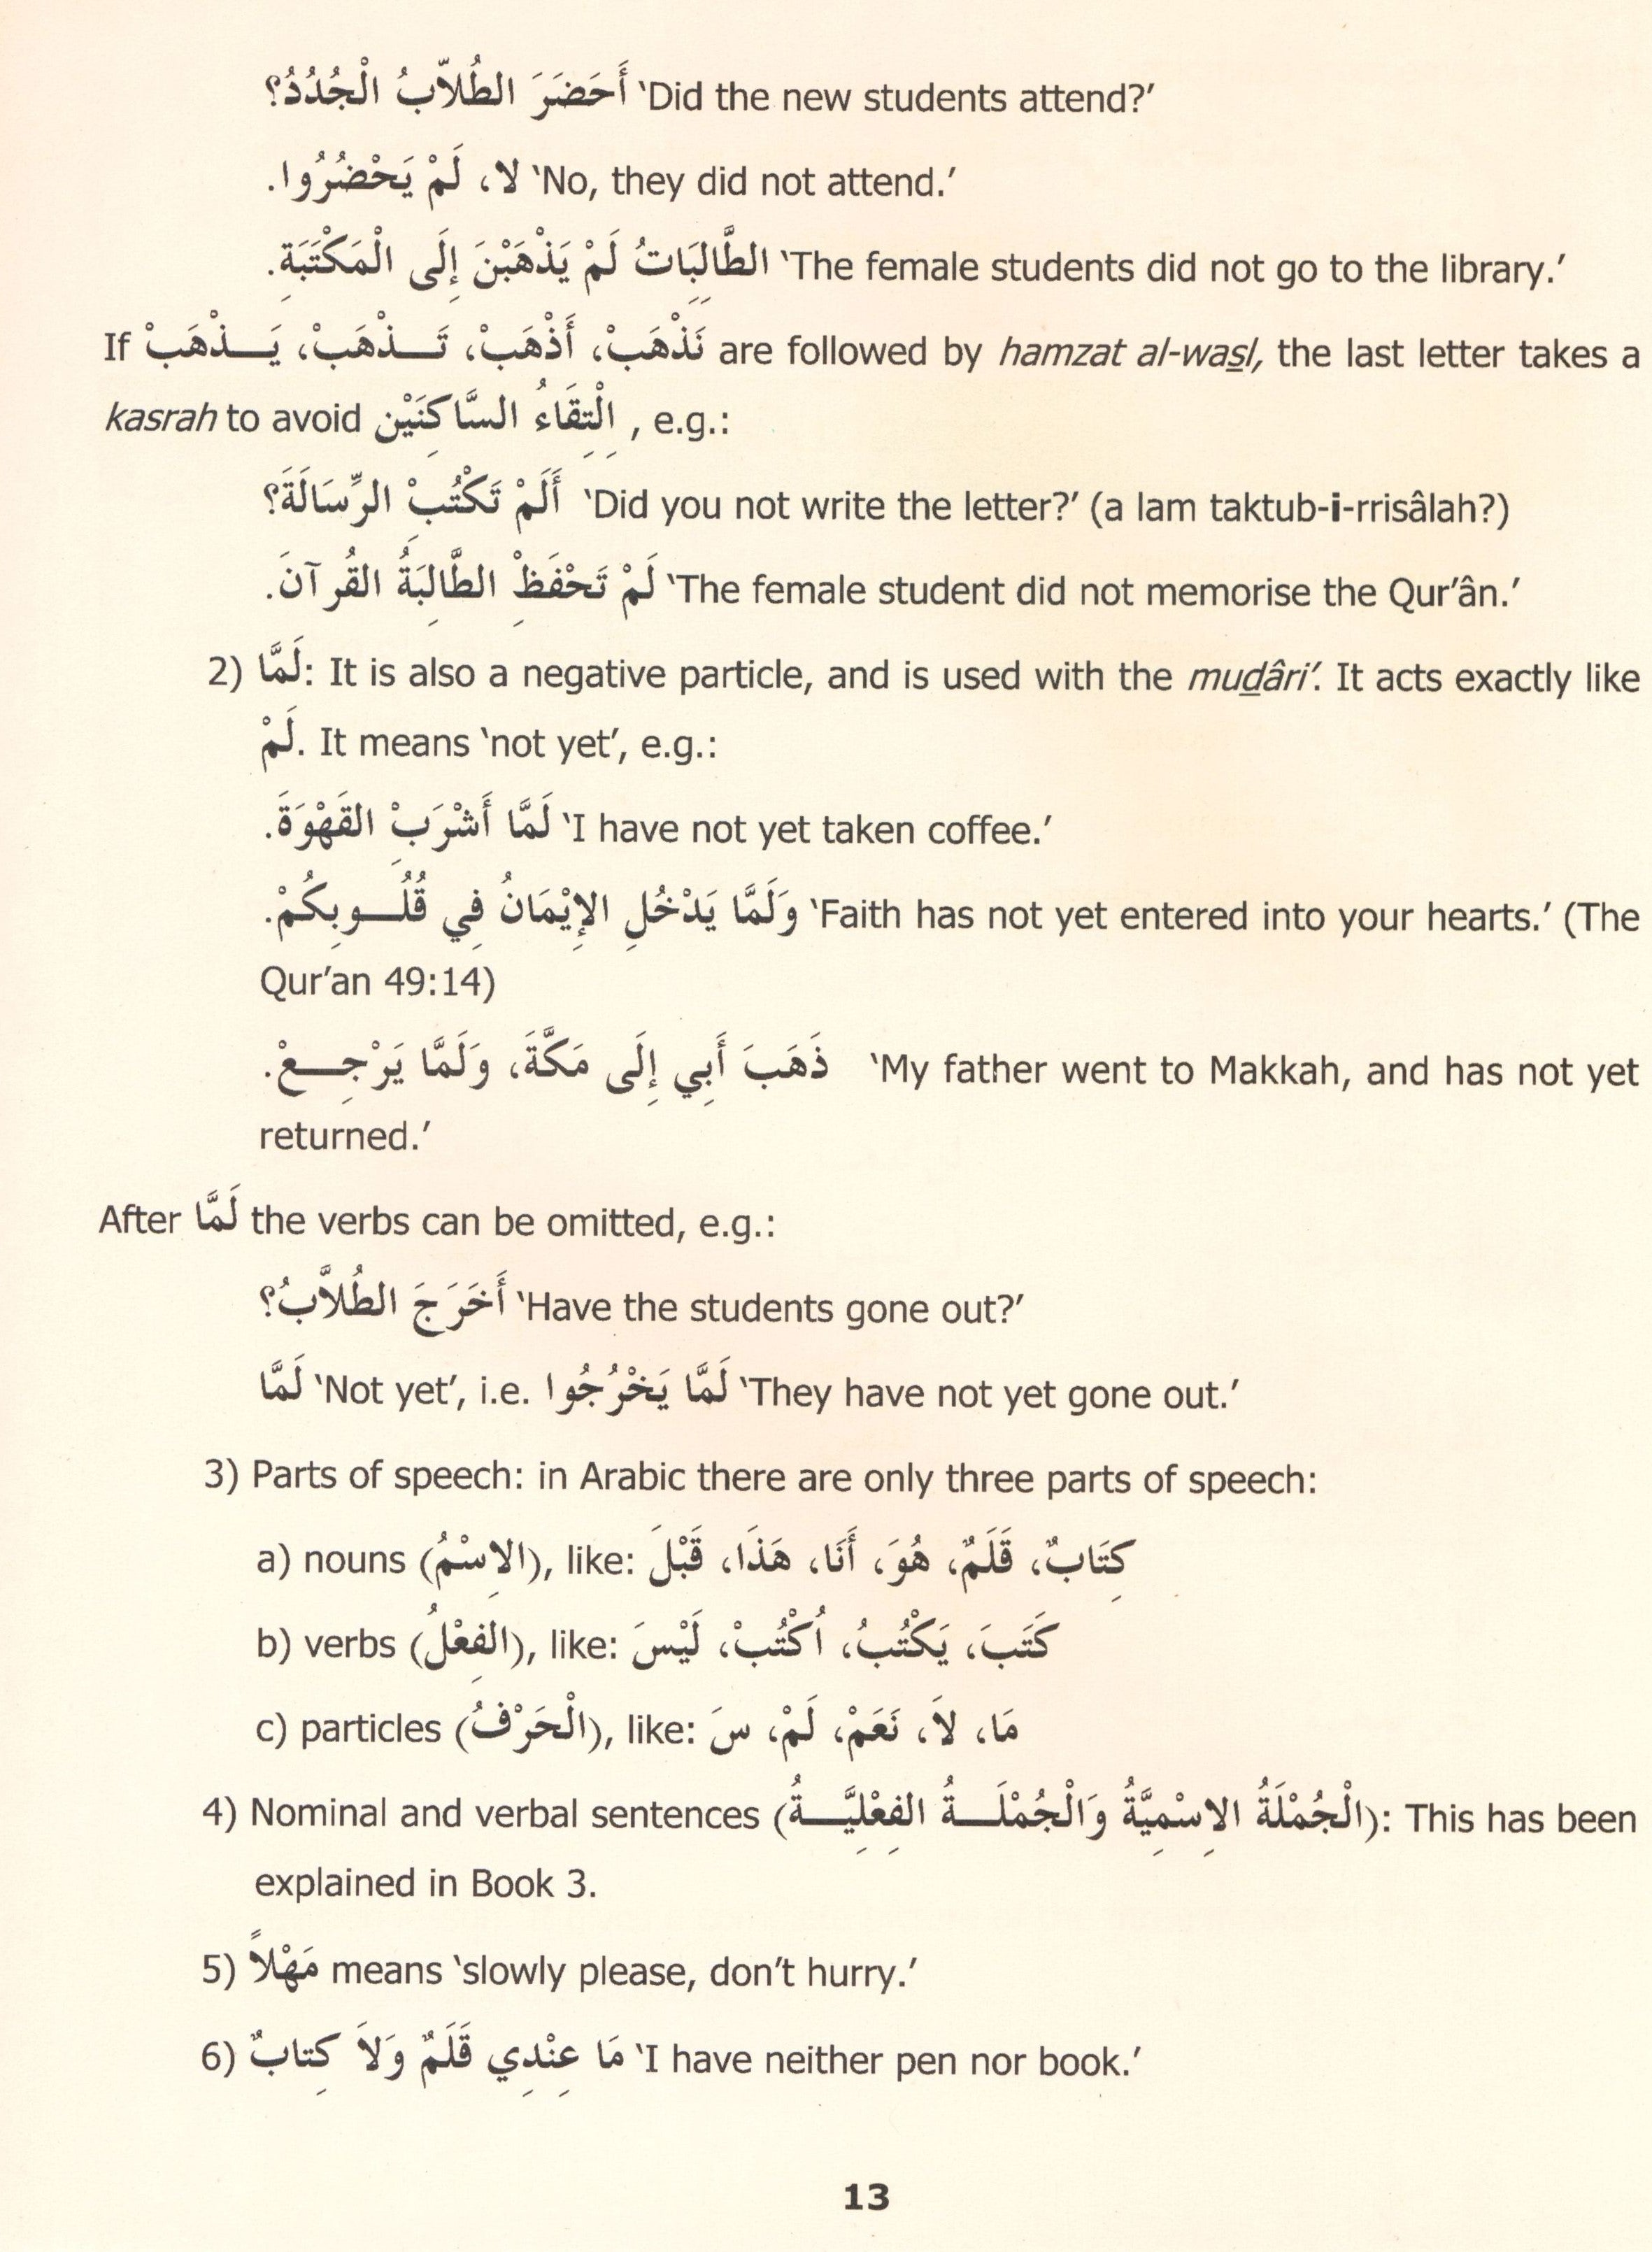 أَحَضَرَ الطُلاّبُ الْجُدُدُ؟ ‘Did the new students attend?’
لا، لَمْ يَحْضُرُوا. ‘No, they did not attend.’
الطَّالِبَاتُ لَمْ يَذْهَبْنَ إِلَى الْمَكْتَبَةِ. ‘The female students did not go to the library.’
If نَذْهَبْ، أَذْهَبْ، تَـــذْهَبْ، يَـــذْهَبْ are followed by hamzat al-waṣl, the last letter takes a
kasrah to avoid اِلْتِقَاءُ السَّاكِنَيْن , e.g.:
أَلَمْ تَكْتُبْ الرِّسَالَةَ؟ ‘Did you not write the letter?’ (a lam taktub-i-rrisâlah?)
لَمْ تَحْفَظِْ الطَّالِبَةُ القُرآنَ. ‘The female student did not memorise the Qur’ân.’
2) لَمَّا: It is also a negative particle, and is used with the muḏâri‘. It acts exactly like
لَمْ. It means ‘not yet’, e.g.:
لَمَّا أَشْرَبْ القَهْوَةَ. ‘I have not yet taken coffee.’
وَلَمَّا يَدْخُلِ الإِيْمَانُ فِي قُلُـــوبِكُمْ. ‘Faith has not yet entered into your hearts.’ (The
Qur’an 49:14)
ذَهَبَ أَبِي إِلَى مَكَّةَ، وَلَمَّا يَرْجِـــعْ. ‘My father went to Makkah, and has not yet
returned.’
After لَمَّا the verbs can be omitted, e.g.:
أَخَرَجَ الطُلاَّبُ؟ ‘Have the students gone out?’
لَمَّا ‘Not yet’, i.e. لَمَّا يَخْرُجُوا ‘They have not yet gone out.’
3) Parts of speech: in Arabic there are only three parts of speech:
a) nouns (الاِسْمُ), like: كِتَابٌ، قَلَمٌ، هُوَ، أَنَا، هَذَا، قَبْلَ
b) verbs (الفِعْلُ), like: كَتَبَ، يَكْتُبُ، اُكْتُبْ، لَيْسَ
c) particles (الْحَرْفُ), like: مَا، لاَ، نَعَمْ، لَمْ، سَ
4) Nominal and verbal sentences (الْجُمْلَةُ الاِسْمِيَّةُ وَالْجُمْلَـــةُ الفِعْلِيَّـــةُ): This has been
explained in Book 3.
5) مَهْلاً means ‘slowly please, don’t hurry.’
6) مَا عِنْدِي قَلَمٌ وَلاَ كِتابٌ ‘I have neither pen nor book.’
13